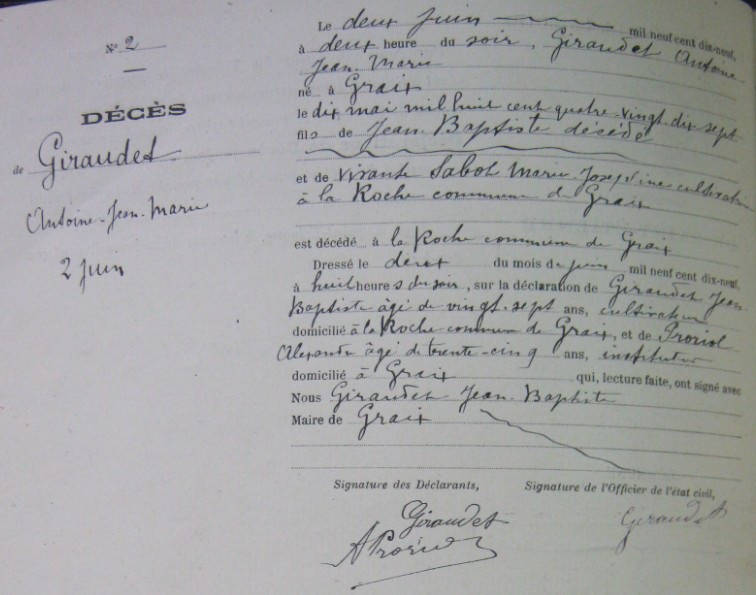 N° 2
DÉCÈS
de Giraudet
Antoine-Jean-Marie
2 juin
Le deux juin mil neuf cent dix-neuf,
à deux heure du soir, Giraudet Antoine
Jean-Marie
né à Graix
le dix mai mil huit cent quatre-vingt-dix-sept
fils de Jean-Baptiste décédé
et de vivante Sabot Marie-Joséphine cultivatrice
à la Roche commune de Graix
est décédé à la Roche commune de Graix
Dressé le deux du mois de juin mil neuf cent dix-neuf,
à huit heure s du soir, sur la déclaration de Giraudet Jean
Baptiste âgé de vingt-sept ans, cultivateur
domicilié à la Roche commune de Graix, et de Proriol
Alexandre âgé de trente-cinq ans, instituteur
domicilié à Graix qui, lecture faite, ont signé avec
Nous Giraudet Jean-Baptiste
Maire de Graix
Signature des Déclarants, Signature de l'Officier de l'état civil,
Giraudet Giraudet
A Proriol